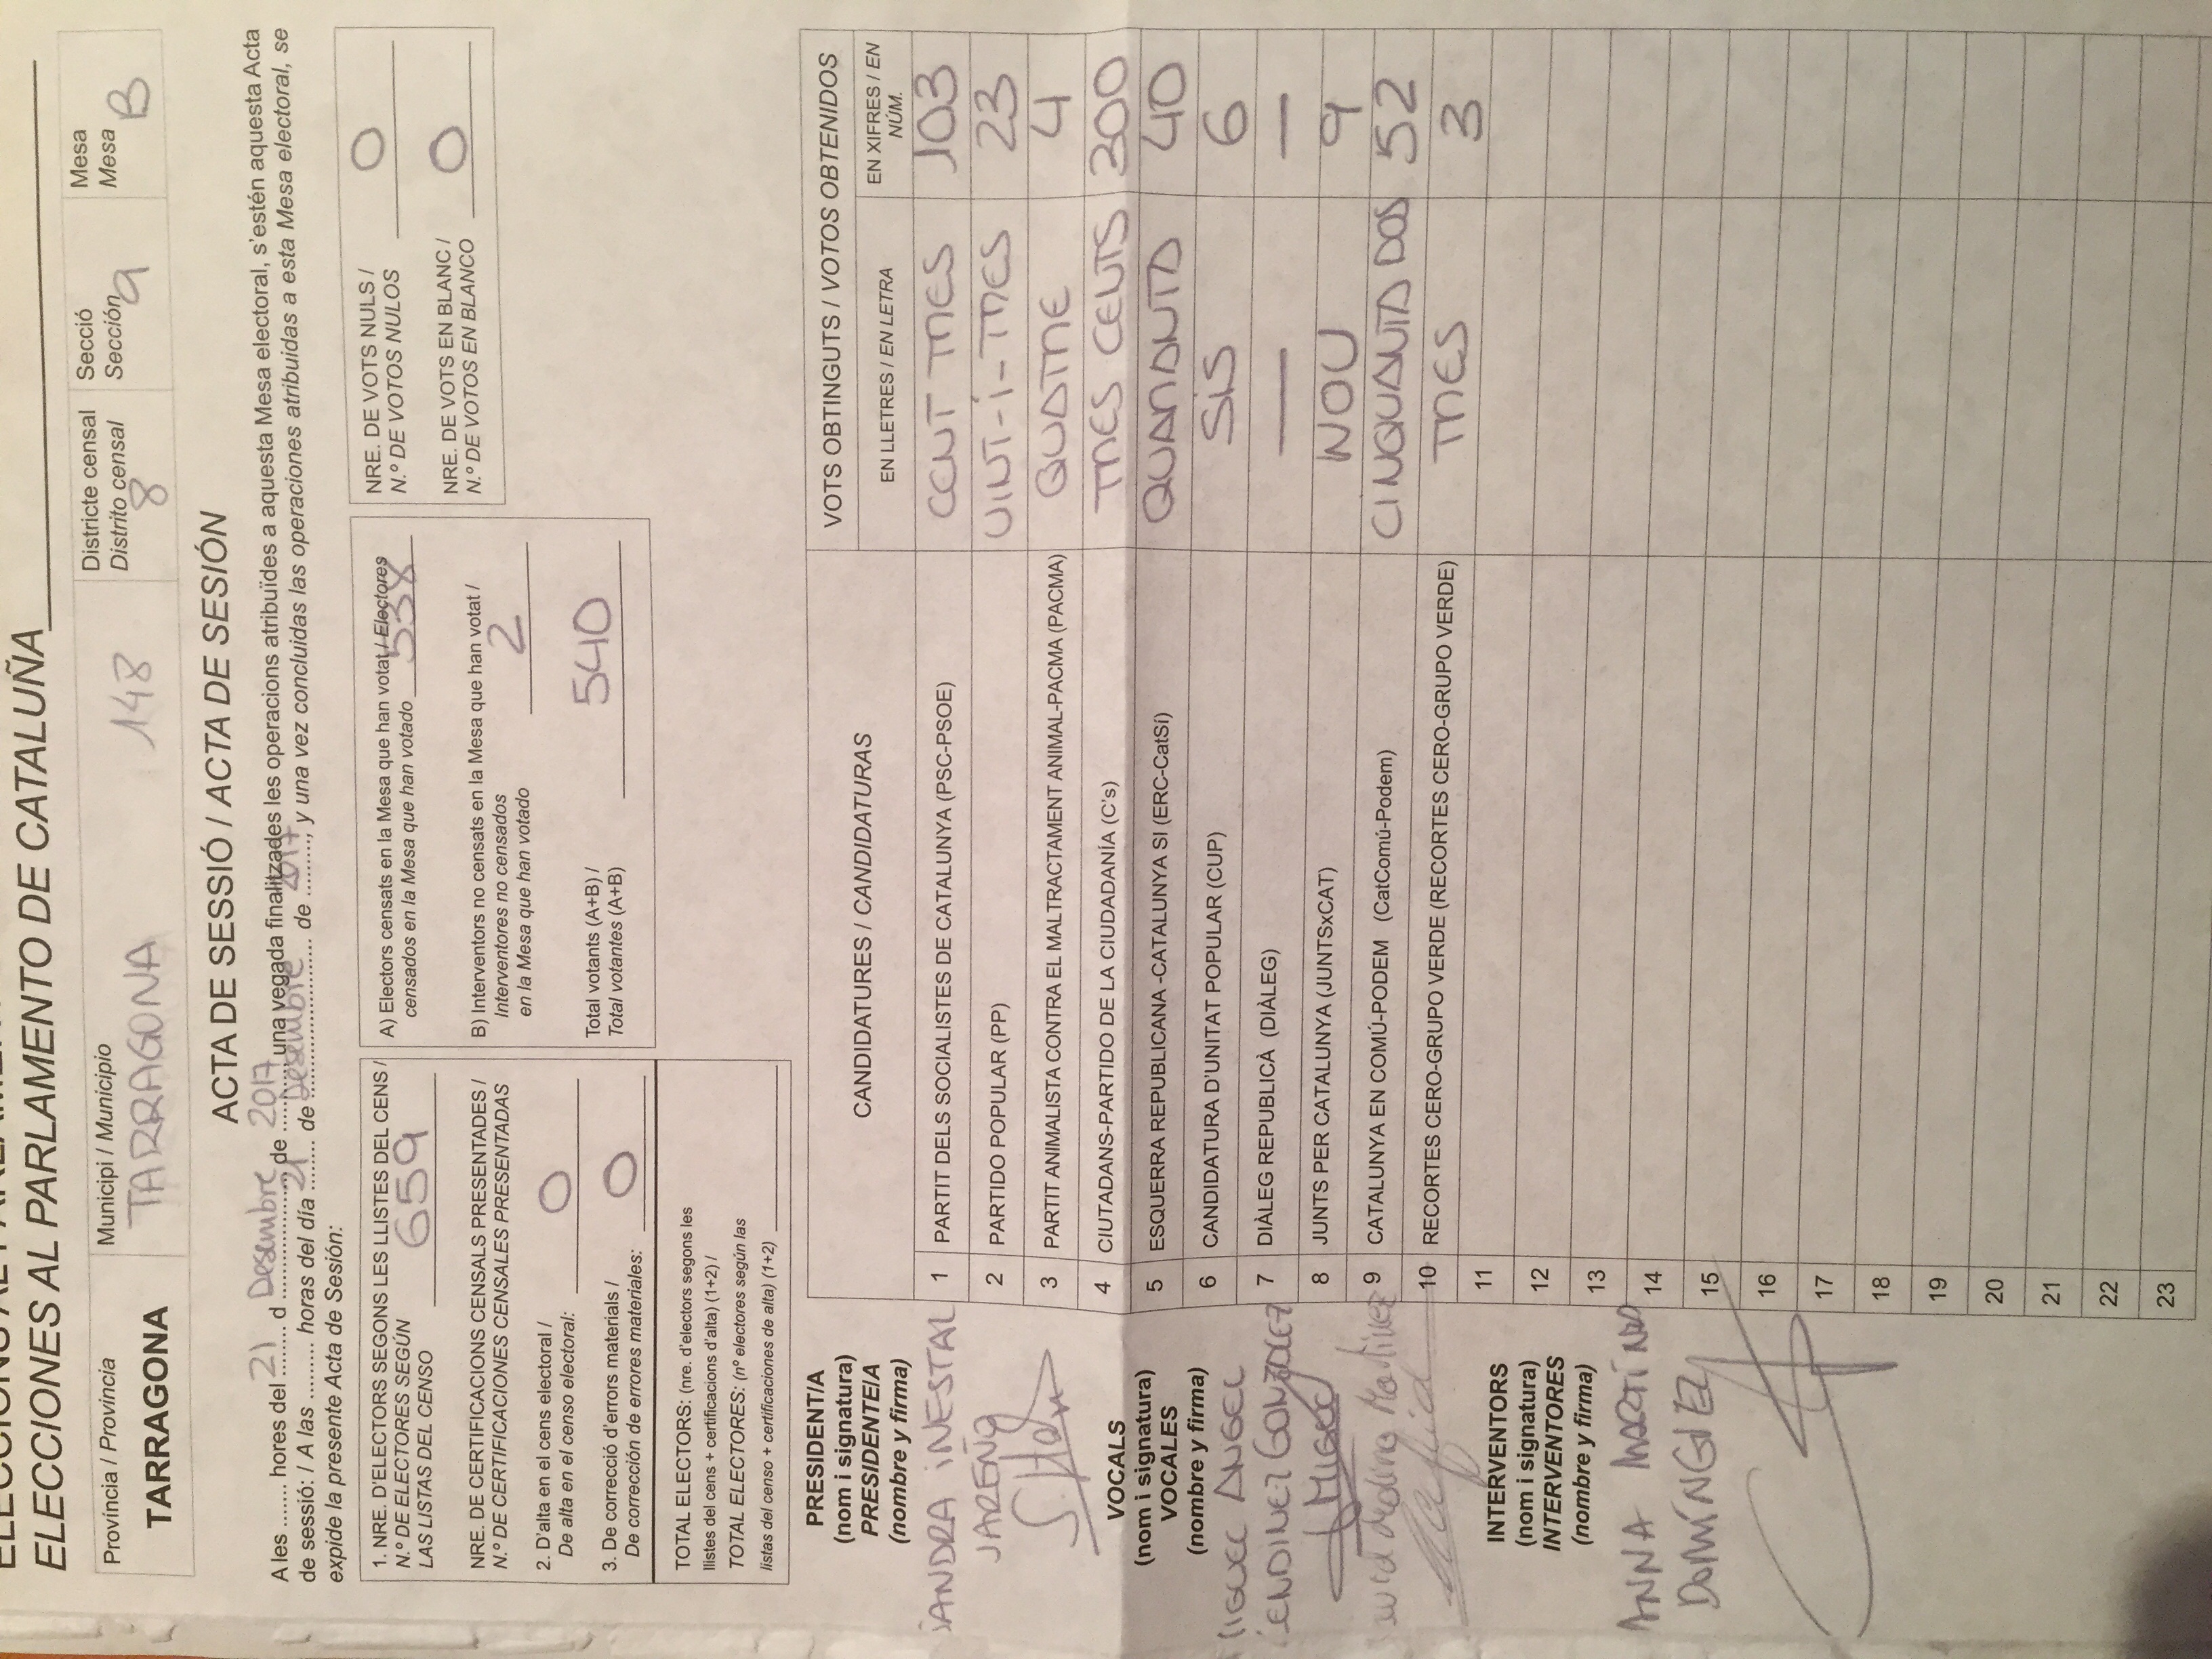 ELECCIONS AL PARLAMEN
ELECCIONES AL PARLAMENTO DE CATALUÑA
Província / Provincia
TARRAGONA
Municipi / Municipio
TARRAGONA 148
Districte censal
Distrito censal
8
Secció
Sección
9
Mesa
Mesa
B
ACTA DE SESSIÓ / ACTA DE SESIÓN
A les ....... hores del 21 d Desembre de 2017, una vegada finalitzades les operacions atribuïdes a aquesta Mesa electoral, s'estén aquesta Acta
de sessió: / A las ......... horas del día 21 de Desembre de 2017, y una vez concluidas las operaciones atribuidas a esta Mesa electoral, se
expide la presente Acta de Sesión:
1. NRE. D'ELECTORS SEGONS LES LLISTES DEL CENS /
N.º DE ELECTORES SEGÚN
LAS LISTAS DEL CENSO 659
NRE. DE CERTIFICACIONS CENSALS PRESENTADES /
N.º DE CERTIFICACIONES CENSALES PRESENTADAS
2. D'alta en el cens electoral /
De alta en el censo electoral: 0
3. De correcció d'errors materials /
De corrección de errores materiales: 0
TOTAL ELECTORS: (nre. d'electors segons les
llistes del cens + certificacions d'alta) (1+2) /
TOTAL ELECTORES: (nº electores según las
listas del censo + certificaciones de alta) (1+2)
A) Electors censats en la Mesa que han votat / Electores
censados en la Mesa que han votado 538
B) Interventors no censats en la Mesa que han votat /
Interventores no censados
en la Mesa que han votado 2
Total votants (A+B) /
Total votantes (A+B) 540
NRE. DE VOTS NULS /
N.º DE VOTOS NULOS 0
NRE. DE VOTS EN BLANC /
N.º DE VOTOS EN BLANCO 0
PRESIDENT/A
(nom i signatura)
PRESIDENTE/A
(nombre y firma)
SANDRA INESTAL
JAREÑO
VOCALS
(nom i signatura)
VOCALES
(nombre y firma)
MIGUEL ANGEL
GONZALEZ
MIGUEL
Medina Martinez
INTERVENTORS
(nom i signatura)
INTERVENTORES
(nombre y firma)
ANNA MARTÍNEZ
DOMÍNGUEZ
CANDIDATURES / CANDIDATURAS
VOTS OBTINGUTS / VOTOS OBTENIDOS
EN LLETRES / EN LETRA
EN XIFRES / EN
NÚM.
1 PARTIT DELS SOCIALISTES DE CATALUNYA (PSC-PSOE) CENT TRES 103
2 PARTIDO POPULAR (PP) VINT-I-TRES 23
3 PARTIT ANIMALISTA CONTRA EL MALTRACTAMENT ANIMAL-PACMA (PACMA) QUATRE 4
4 CIUTADANS-PARTIDO DE LA CIUDADANÍA (C's) TRES CENTS 300
5 ESQUERRA REPUBLICANA -CATALUNYA SI (ERC-CatSí) QUARANTA 40
6 CANDIDATURA D'UNITAT POPULAR (CUP) SIS 6
7 DIÀLEG REPUBLICÀ (DIÀLEG) — —
8 JUNTS PER CATALUNYA (JUNTSxCAT) NOU 9
9 CATALUNYA EN COMÚ-PODEM (CatComú-Podem) CINQUANTA DOS 52
10 RECORTES CERO-GRUPO VERDE (RECORTES CERO-GRUPO VERDE) TRES 3
11
12
13
14
15
16
17
18
19
20
21
22
23